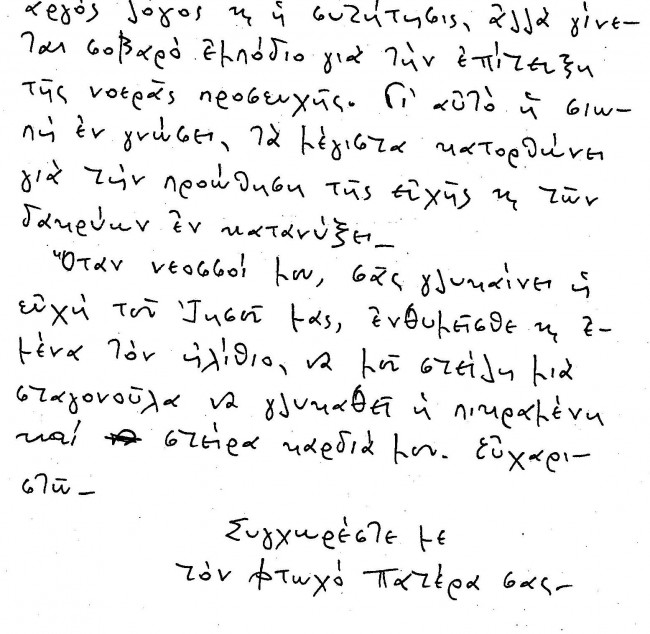 αργός λόγος κ ἡ συζήτησις, ἀλλά γίνε–
ται σοβαρό ἐμπόδιο γιά τήν ἐπίτευξη
τῆς νοερᾶς προσευχῆς. Γι' αὐτό ἡ σιω–
πή ἐν γνώσει, τά μέγιστα κατορθώνει
γιά τήν προώθηση τῆς εὐχῆς κ τῶν
δακρύων ἐν κατανύξει–
Ὅταν νεοσσοί μου, σᾶς γλυκαίνει ἡ
εὐχή τοῦ Ἰησοῦ μας, ἐνθυμεῖσθε κ ἐ–
μένα τόν ἠλίθιο, νά μοῦ στείλη μιά
σταγονούλα νά γλυκαθεῖ ἡ πικραμένη
καί στείρα καρδιά μου. Εὐχαρι–
στῶ–
Συγχωρέστε με
τόν φτωχό πατέρα σας–